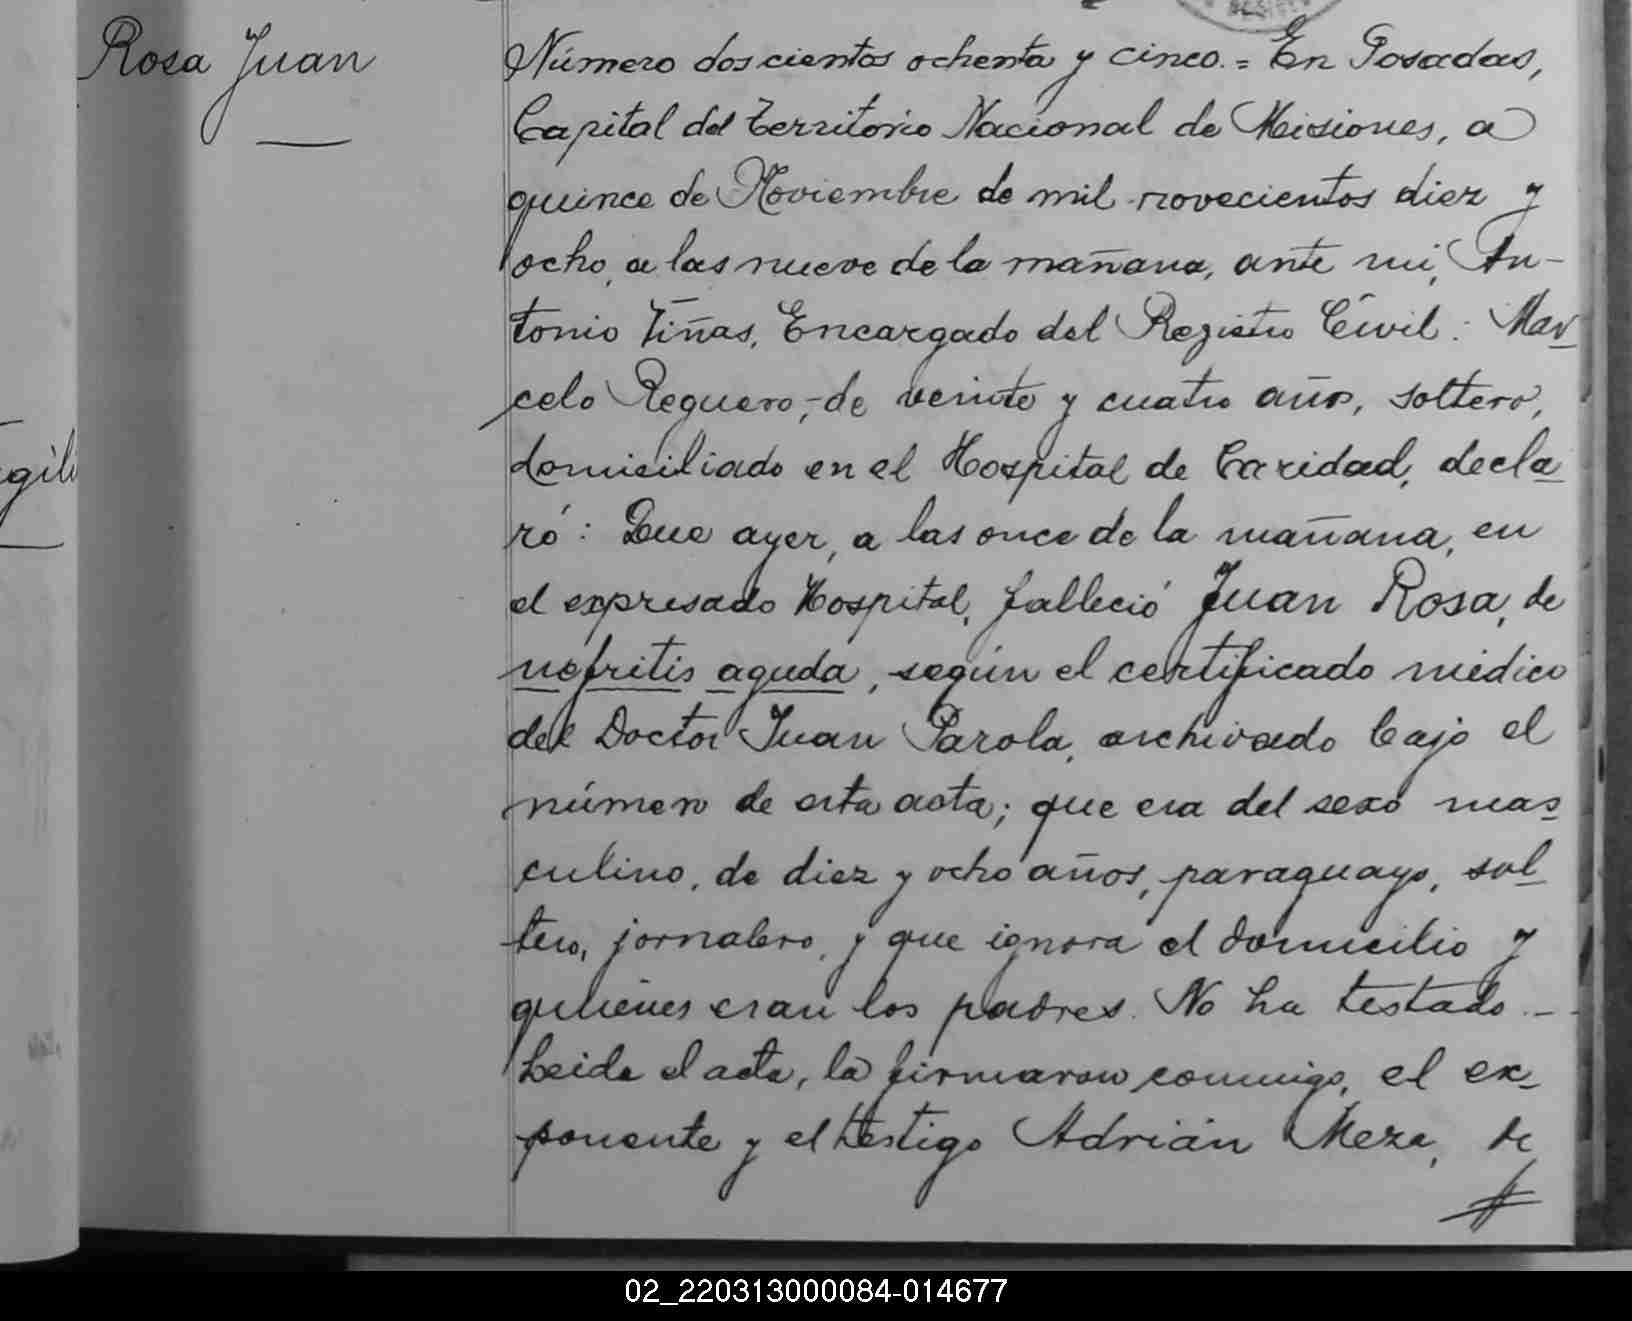 Rosa Juan
Número doscientos ochenta y cinco.= En Posadas,
Capital del Territorio Nacional de Misiones, a
quince de Noviembre de mil novecientos diez y
ocho, a las nueve de la mañana, ante mi, An-
tonio Viñas, Encargado del Registro Civil: Mar-
celo Reguero, de veinte y cuatro años, soltero,
domiciliado en el Hospital de Caridad, decla-
ró: Que ayer, a las once de la mañana, en
el expresado Hospital, falleció Juan Rosa, de
nefritis aguda, según el certificado médico
del Doctor Juan Parola, archivado bajo el
número de esta acta; que era del sexo mas-
culino, de diez y ocho años, paraguayo, sol-
tero, jornalero, y que ignora el domicilio y
quienes eran los padres. No ha testado.-
Leida el acta, la firmaron conmigo, el ex-
ponente y el testigo Adrián Meza, de
02_220313000084-014677